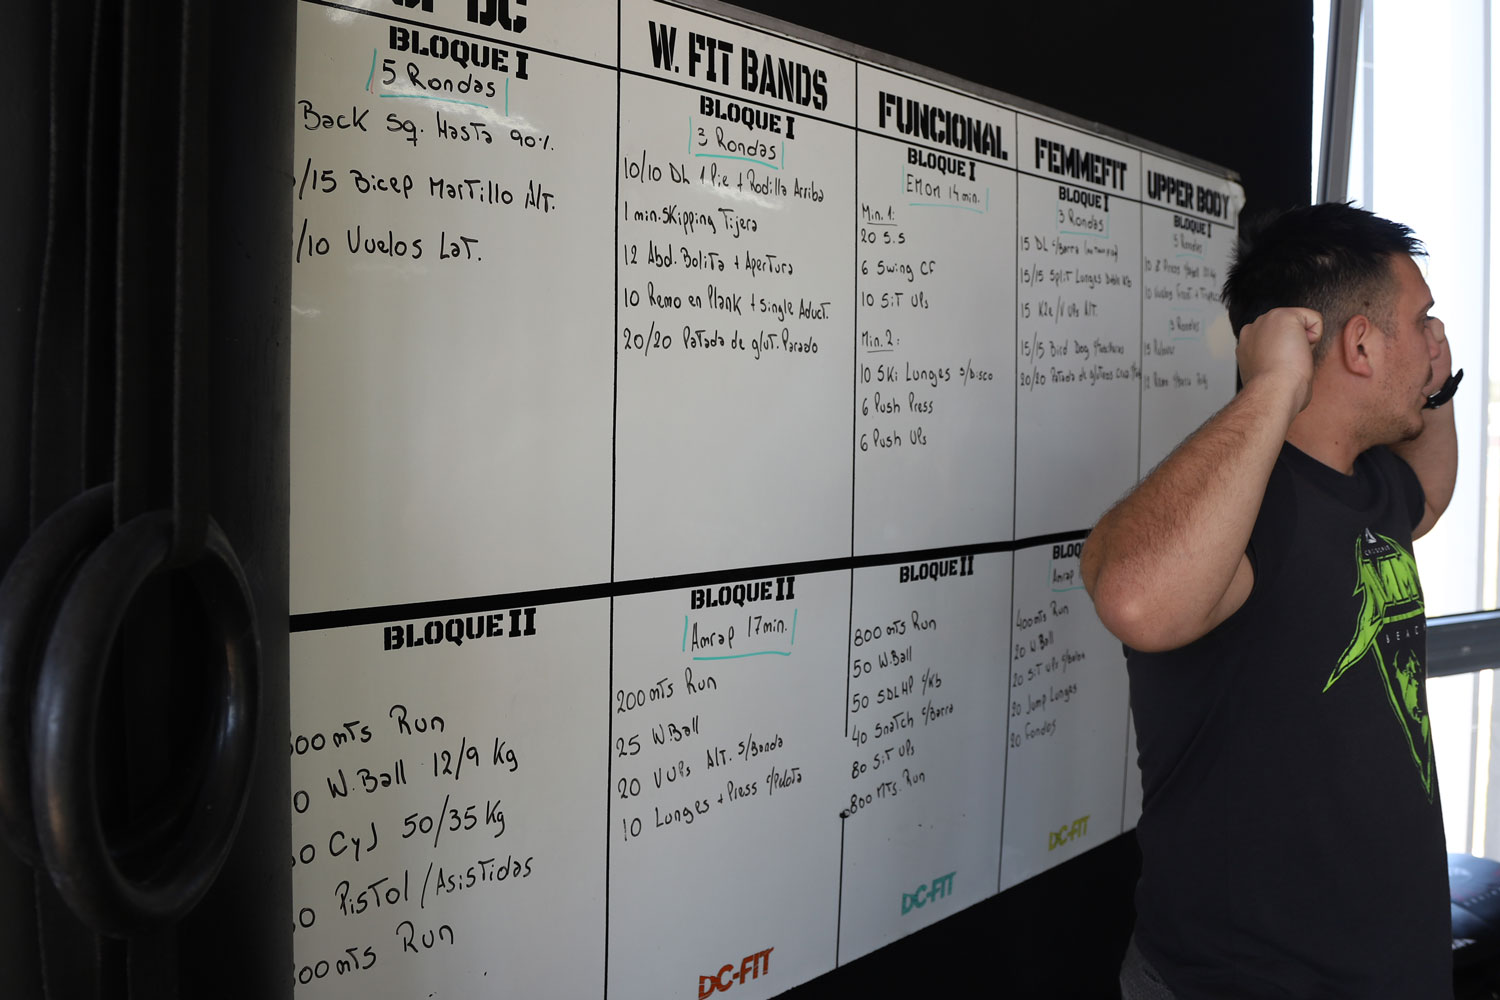 DC
BLOQUE I
5 Rondas
Back Sq. Hasta 90%.
/15 Bicep Martillo Alt.
/10 Vuelos Lat.
BLOQUE II
00 mts Run
0 W.Ball 12/9 Kg
0 CyJ 50/35 Kg
0 Pistol / Asistidas
00 mts Run
W. FIT BANDS
BLOQUE I
3 Rondas
10/10 DL 1 Pie + Rodilla Arriba
1 min. Skipping Tijera
12 Abd. Bolita + Apertura
10 Remo en Plank + single Aduct.
20/20 Patada de glut. Parado
BLOQUE II
Amrap 17 min.
200 mts Run
25 W.Ball
20 V UPs Alt. s/Banda
10 Lunges + Press c/Pelota
DC-FIT
FUNCIONAL
BLOQUE I
Emom 14 min.
Min. 1:
20 S.S
6 Swing CF
10 Sit UPs
Min. 2:
10 Ski Lunges c/Disco
6 Push Press
6 Push UPs
BLOQUE II
800 mts Run
50 W.Ball
50 SDLHP c/Kb
40 Snatch c/Barra
80 Sit UPs
800 Mts. Run
DC-FIT
FEMMEFIT
BLOQUE I
3 Rondas
15 DL c/Barra
15/15 Split Lunges Doble Kb
15 K2e/V UPs Alt.
15/15 Bird Dog
20/20 Patada de gluteos
BLOQ
Amrap
400 mts Run
20 W.Ball
20 Sit UPs
20 Jump Lunges
20 Fondos
DC-FIT
UPPER BODY
BLOQUE I
Rondas
10 Press
10 Vuelos Front +
3 Rondas
15
12 Remo
BEAC